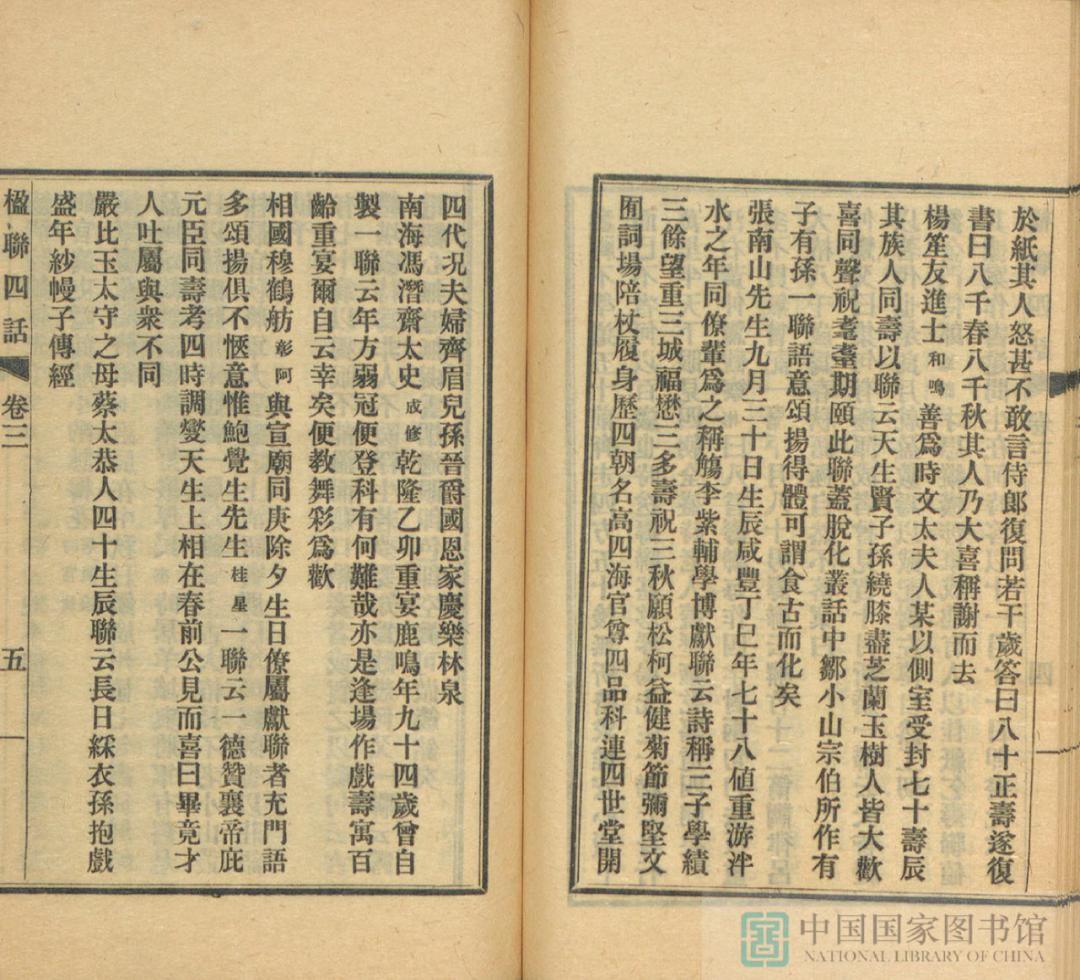 於紙其人怒甚不敢言侍郎復問若干歲答曰八十正壽遂復
書曰八千春八千秋其人乃大喜稱謝而去
楊笙友進士和鳴善爲時文太夫人某以側室受封七十壽辰
其族人同壽以聯云天生賢子孫繞膝盡芝蘭玉樹人皆大歡
喜同聲祝耄耋期頤此聯蓋脫化叢話中鄒小山宗伯所作有
子有孫一聯語意頌揚得體可謂食古而化矣
張南山先生九月三十日生辰咸豐丁巳年七十八値重游泮
水之年同僚輩爲之稱觴李紫輔學博獻聯云詩稱三子學績
三餘望重三城福懋三多壽祝三秋願松柯益健菊節彌堅文
囿詞場陪杖履身歷四朝名高四海官尊四品科連四世堂開
四代况夫婦齊眉兒孫晉爵國恩家慶樂林泉
南海馮潛齋太史成修乾隆乙卯重宴鹿鳴年九十四歲曾自
製一聯云年方弱冠便登科有何難哉亦是逢場作戲壽寓百
齡重宴爾自云幸矣便教舞彩爲歡
相國穆鶴舫彰阿與宣廟同庚除夕生日僚屬獻聯者充門語
多頌揚俱不愜意惟鮑覺生先生桂星一聯云一德贊襄帝庇
元臣同壽考四時調燮天生上相在春前公見而喜曰畢竟才
人吐屬與衆不同
嚴比玉太守之母蔡太恭人四十生辰聯云長日綵衣孫抱戲
盛年紗幔子傳經
楹聯四話 卷三 五
中国国家图书馆
NATIONAL LIBRARY OF CHINA